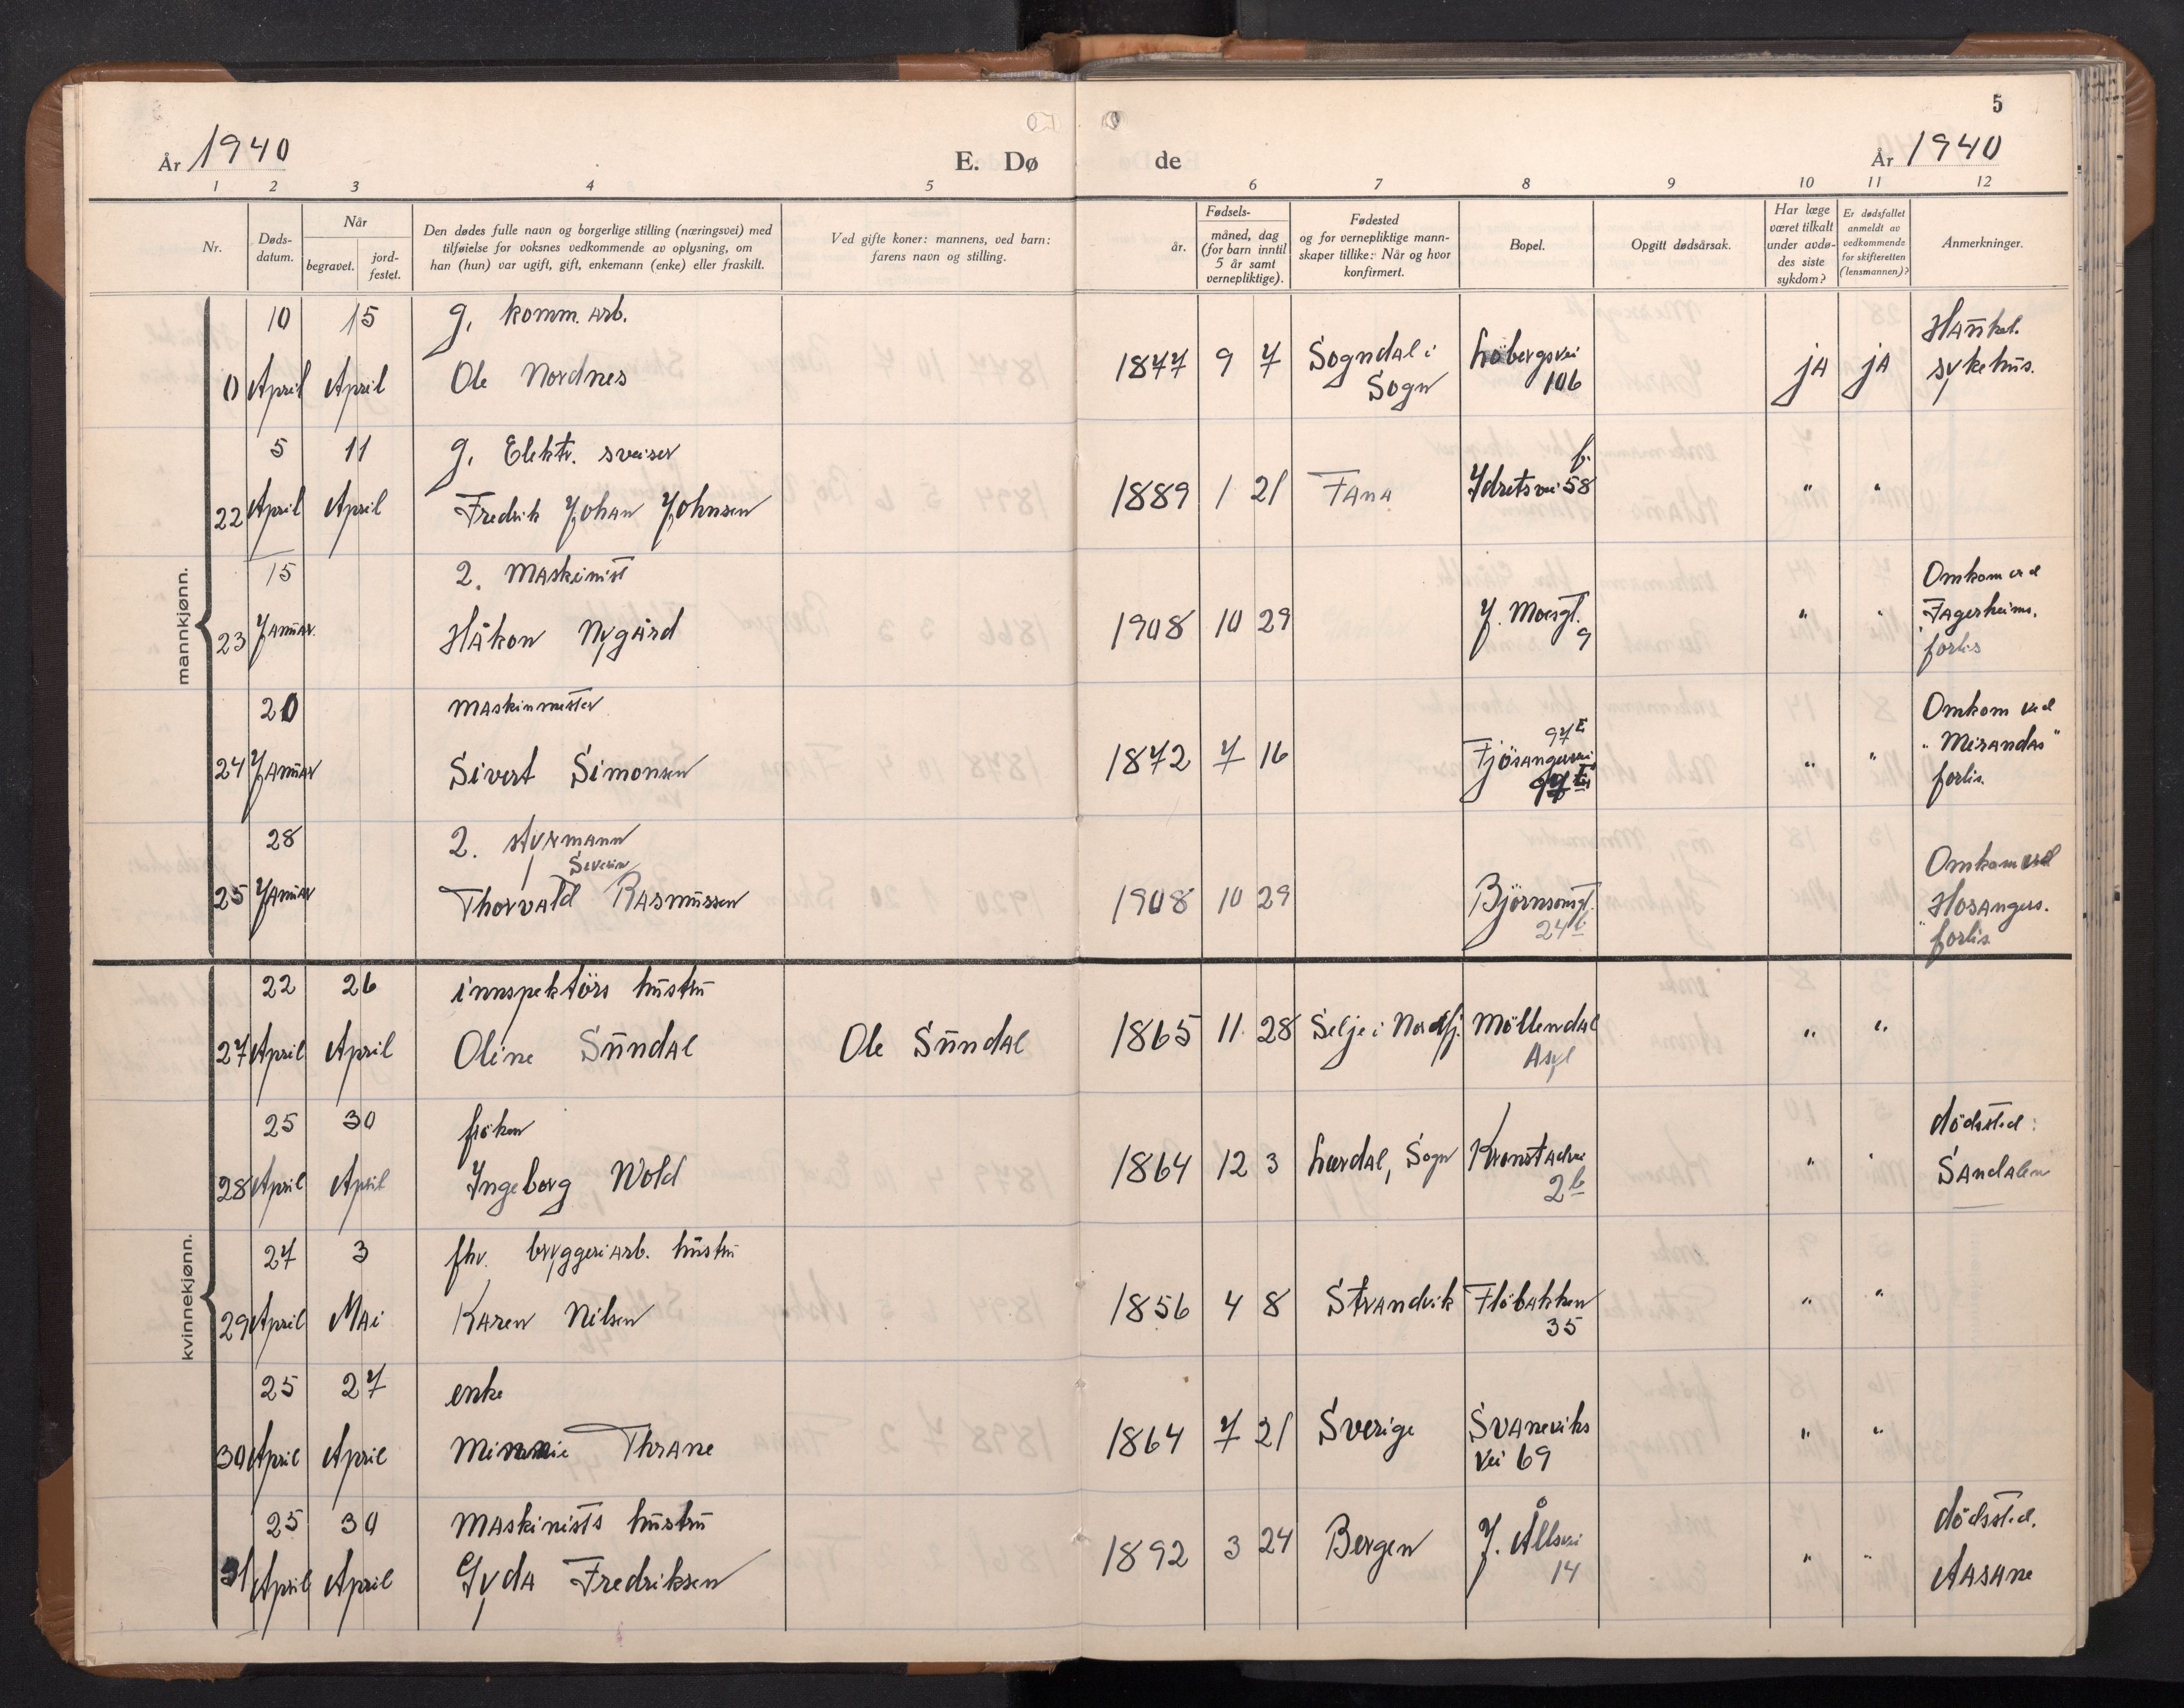 År 1940
E. Dø
de
5
År 1940
1 2 3 4 5 6 7 8 9 10 11 12
Nr.
Døds-
datum.
Når
begravet.
jord-
festet.
Den dødes fulle navn og borgerlige stilling (næringsvei) med
tilføielse for voksnes vedkommende av oplysning, om
han (hun) var ugift, gift, enkemann (enke) eller fraskilt.
Ved gifte koner: mannens, ved barn:
farens navn og stilling.
år.
Fødsels-
måned, dag
(for barn inntil
5 år samt
vernepliktige).
Fødested
og for vernepliktige mann-
skaper tillike: Når og hvor
konfirmert.
Bopel.
Opgitt dødsårsak.
Har læge
været tilkalt
under avdø-
des siste
sykdom?
Er dødsfallet
anmeldt av
vedkommende
for skifteretten
(lensmannen)?
Anmerkninger.
mannkjønn.
10 15 g. komm. arb.
0 April April Ole Nordnes 1877 9 7 Sogndal i Sogn Löbergsvei 106 ja ja Haukel. sykehus.
5 11 g. Elektr. sveiser
22 April April Fredrik Johan Johnsen 1889 1 21 Fana Ydretsvei 58 f. " "
15 2. Maskinist
23 Januar. Håkon Nygård 1908 10 29 J. Moesgt. 9 " " Omkom ved "Fagerheims" forlis
20 maskinmester
24 Januar Sivert Simonsen 1872 7 16 Fjösangervei 97 E " " Omkom ved "Mirandas" forlis.
28 2. styrmann
Severin
25 Januar Thorvald Rasmussen 1908 10 29 Björnsonsgt. 24 b Omkom ved "Hosangers. forlis.
kvinnekjønn.
22 26 innspektörs hustru
27 April April Oline Sundal Ole Sundal 1865 11 28 Selje i Nordfj. Möllendal Asyl " "
25 30 fröken
28 April April Ingeborg Wold 1864 12 3 Lærdal, Sogn Kronstadvei 2 b " " dödssted: Sandalen
27 3 fhv. bryggeriarb. hustru
29 April Mai Karen Nilsen 1856 4 8 Strandvik Flöbakken 35 " "
25 27 enke
30 April April Minnie Thrane 1864 7 21 Sverige Svaneviks vei 69 " "
25 30 Maskinists hustru
31 April April Gyda Fredriksen 1892 3 24 Bergen J. Ållsvei 14 " " dödssted. Aasane